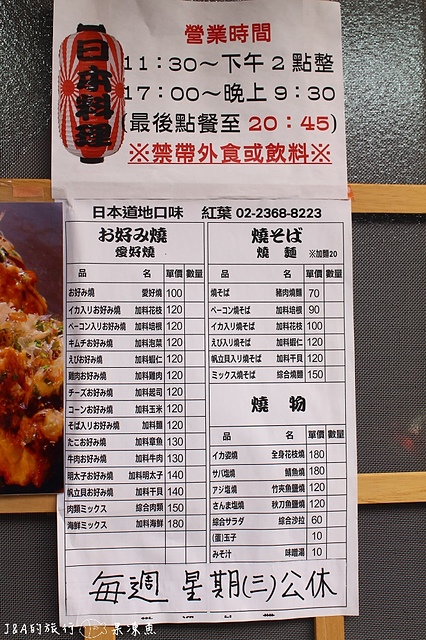 日本料理
營業時間
11：30～下午 2 點整
17：00～晚上 9：30
(最後點餐至 20：45)
※禁帶外食或飲料※
日本道地口味 紅葉 02-2368-8223
お好み燒
愛好燒
品 名 單價 數量
お好み燒 愛好燒 100
イカ入りお好み燒 加料花枝 120
ベーコン入お好み燒 加料培根 120
キムチお好み燒 加料泡菜 120
えびお好み燒 加料蝦仁 120
雞肉お好み燒 加料雞肉 120
チーズお好み燒 加料起司 120
コーンお好み燒 加料玉米 120
そば入りお好み燒 加料麵 120
たこお好み燒 加料章魚 130
牛肉お好み燒 加料牛肉 130
明太子お好み燒 加料明太子 140
帆立貝お好み燒 加料干貝 140
肉類ミックス 綜合肉類 150
海鮮ミックス 加料海鮮 180
燒そば
燒 麵 ※加麵20
品 名 單價 數量
燒そば 豬肉燒麵 70
ベーコン燒そば 加料培根 90
イカ入り燒そば 加料花枝 100
えび入り燒そば 加料蝦仁 120
帆立貝入り燒そば 加料干貝 120
ミックス燒そば 綜合燒麵 150
燒 物
品 名 單價 數量
イカ姿燒 全身花枝燒 180
サバ塩燒 鯖魚燒 180
アジ塩燒 竹夾魚鹽燒 120
さんま塩燒 秋刀魚鹽燒 120
綜合サラダ 綜合沙拉 60
(蛋)玉子 10
みそ汁 味噌湯 10
每週 星期(三)公休
J&A的旅行 果凍魚